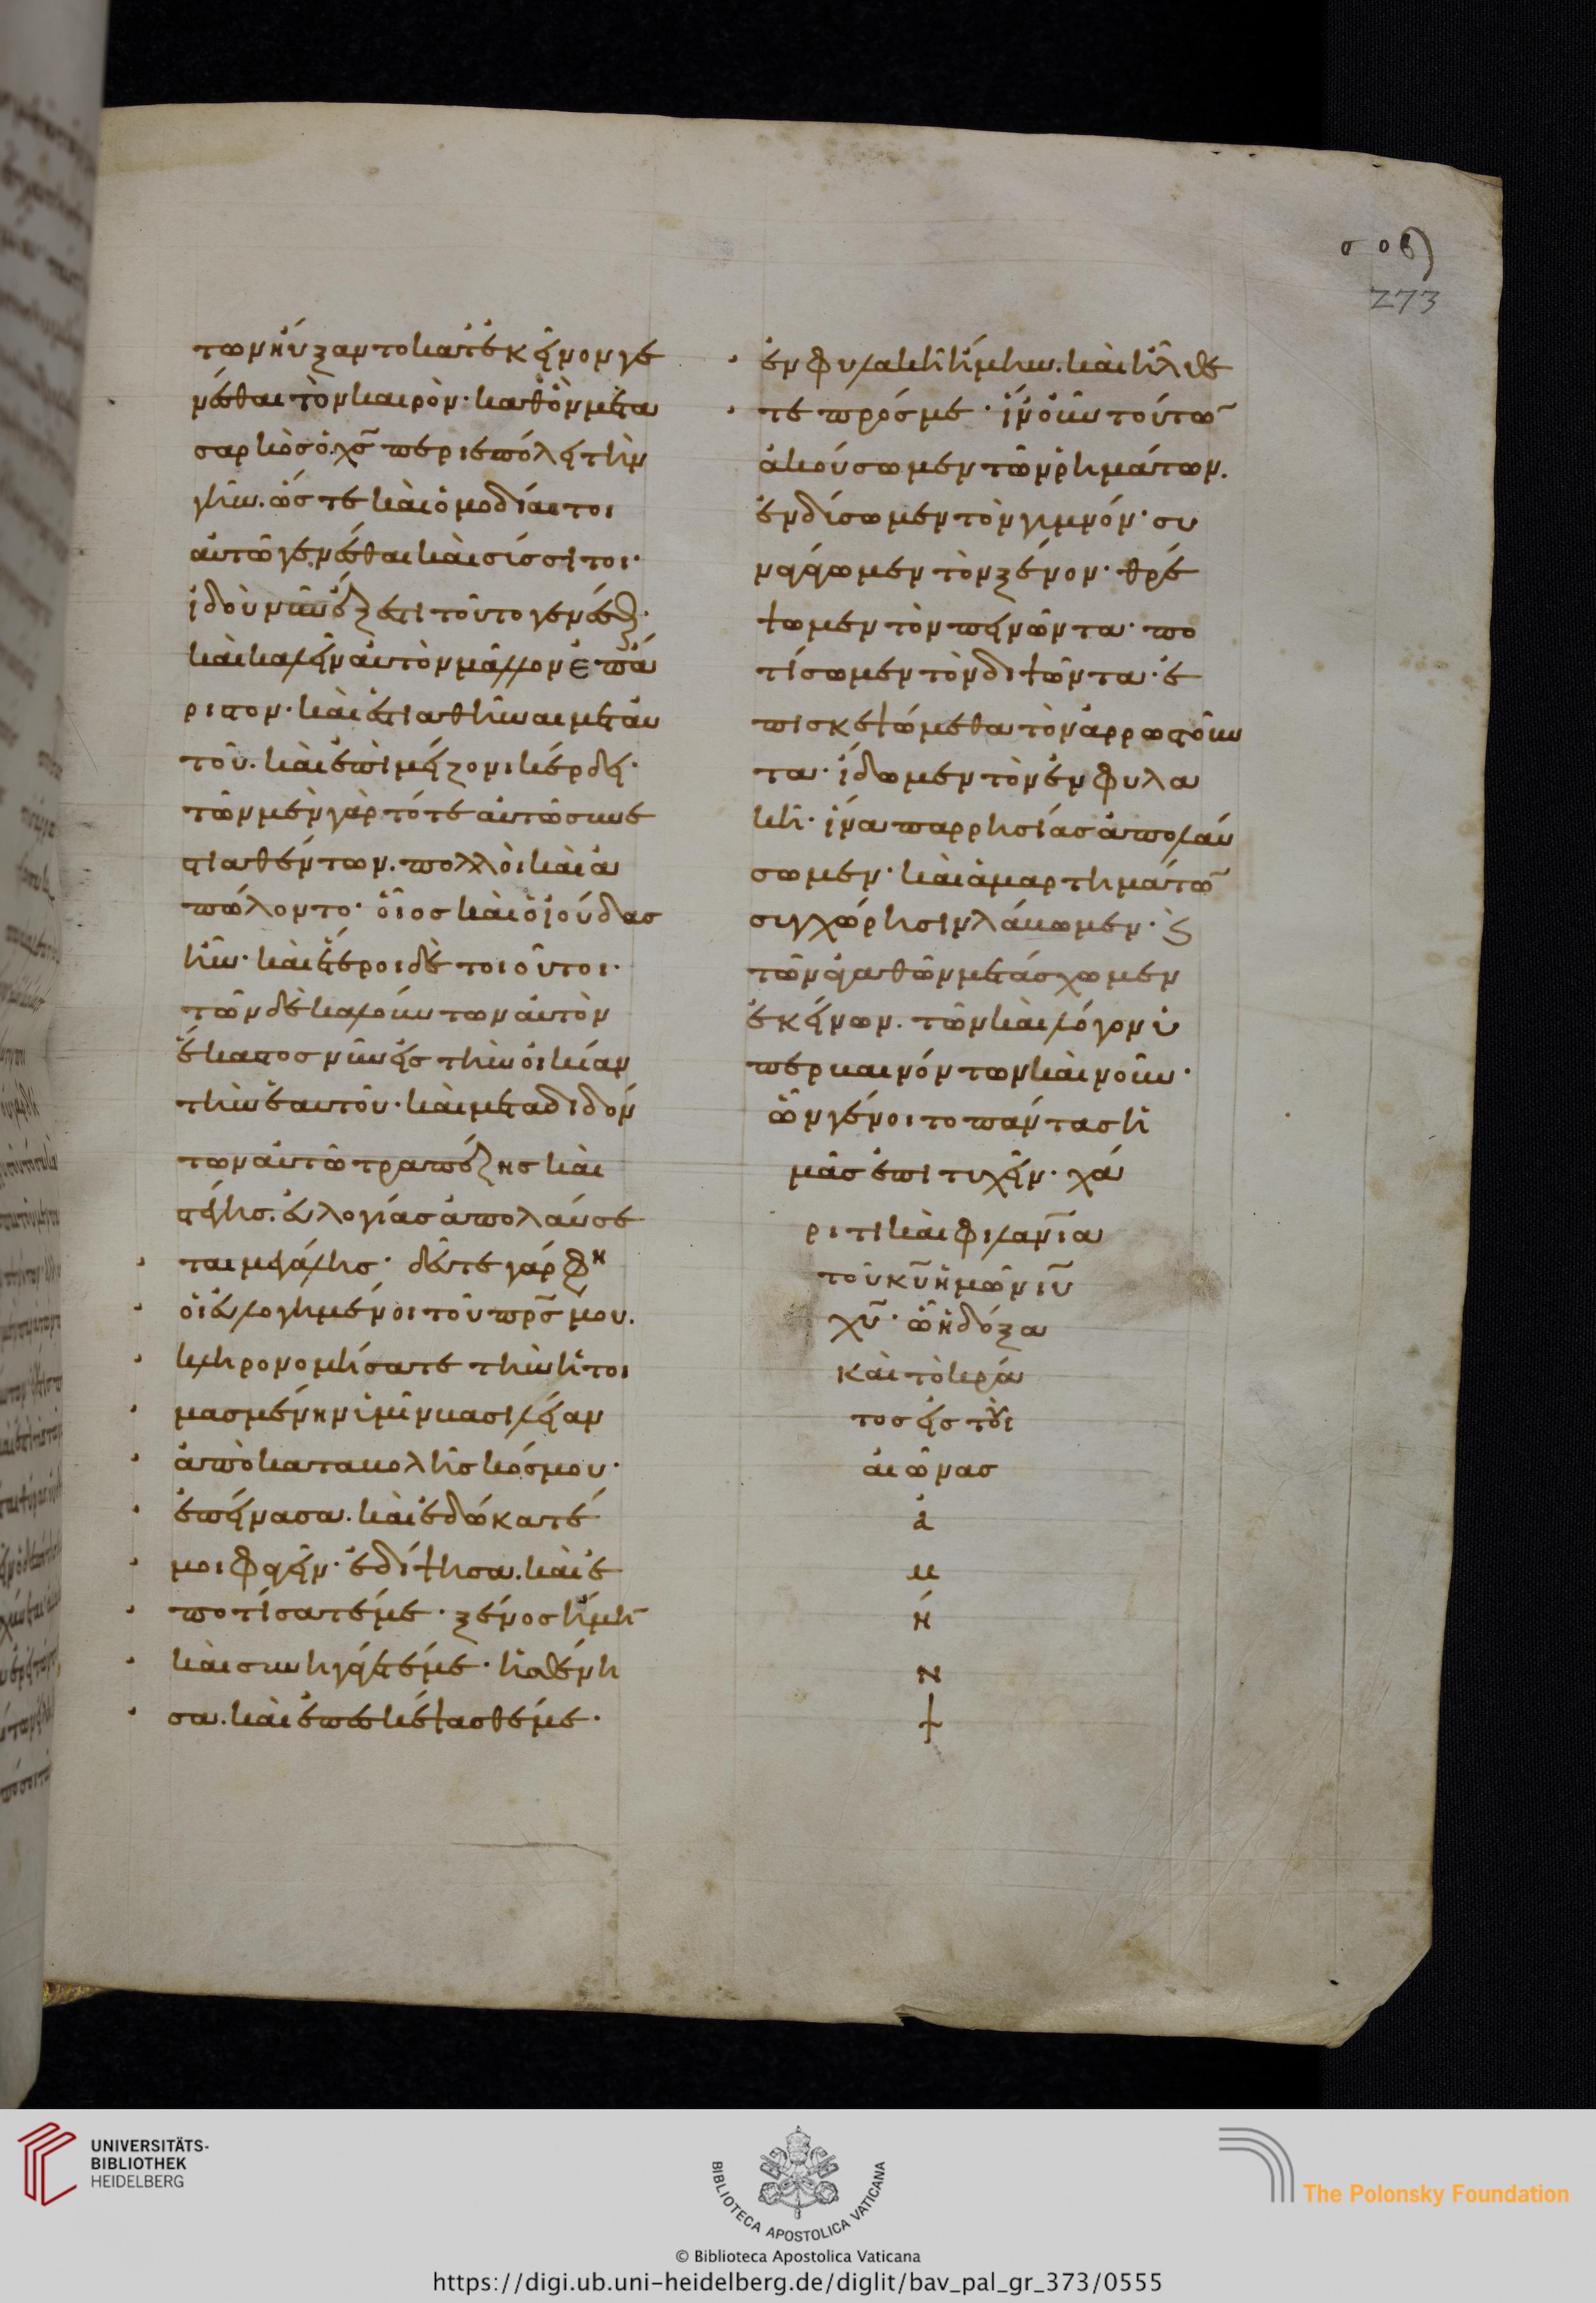 σοβ
273
των ηύξαντο κατ' ἐκεῖνον γε
νέσθαι τὸν καιρὸν· καθ' ὃν μετὰ
σαρκὸς ὁ χς περιεπόλει τὴν
γῆν. ὥστε καὶ ὁμοδίαιτοι
αὐτῶ γενέσθαι καὶ σίσσιτοι·
ἰδοὺ νῦν ἔξεστι τοῦτο γενέσθαι·
καὶ καλεῖν αὐτὸν μᾶλλον ἐπ' ἄ
ριστον· καὶ ἑστιαθῆναι μετ' αὐ
τοῦ. καὶ ἐπὶ μείζονι κέρδει·
τῶν μὲν γὰρ τότε αὐτῶ συνε
στιαθέντων. πολλοὶ καὶ ἀ
πώλοντο· οἷος καὶ ὁ ἰούδας
ἦν· καὶ ἕτεροι δὲ τοιοῦτοι·
τῶν δὲ καλούντων αὐτὸν
ἕκαστος νῦν εἰς τὴν οἰκίαν
τὴν ἑαυτοῦ· καὶ μεταδιδόν
των αὐτῶ τραπέζης καὶ
στέγης. εὐλογίας ἀπολαύσε
ται μεγάλης· δεῦτε γάρ φη
οἱ εὐλογημένοι τοῦ πρς μου.
κληρονομήσατε τὴν ἡτοι
μασμένην ὑμῖν βασιλείαν
ἀπὸ καταβολῆς κόσμου·
ἐπείνασα. καὶ ἐδώκατέ
μοι φαγεῖν· ἐδίψησα. καὶ ἐ
ποτίσατέ με· ξένος ἤμη
καὶ συνηγάγετέ με· ἠσθένη
σα. καὶ ἐπεσκέψασθέ με·
ἐν φυλακῆ ἤμην. καὶ ἤλθε
τε πρός με· ἵν' οὖν τούτω
ἀκούσωμεν τῶν ῥημάτων.
ἐνδύσωμεν τὸν γυμνόν· συ
ναγάγωμεν τὸν ξένον· θρέ
ψωμεν τὸν πεινῶντα· πο
τίσωμεν τὸν διψῶντα· ἐ
πισκεψώμεθα τὸν ἀρρωστοῦν
τα· ἴδωμεν τὸν ἐν φυλα
κῆ· ἵνα παρρησίας ἀπολαύ
σωμεν· καὶ ἁμαρτημάτω
συγχώρησιν λάβωμεν· ϗ
τῶν ἀγαθῶν μετάσχωμεν
ἐκείνων. τῶν καὶ λόγον ὑ
περβαινόντων καὶ νοῦν·
ὧν γένοιτο πάντας ἡ
μᾶς ἐπιτυχεῖν· χά
ριτι καὶ φιλανια
τοῦ κυ ἡμῶν ιυ
χυ· ὧ ἡ δόξα
καὶ τὸ κρά
τος εἰς τοὺς
αἰῶνας
ἀ
μ
ή
ν
UNIVERSITÄTS-
BIBLIOTHEK
HEIDELBERG
BIBLIOTECA APOSTOLICA VATICANA
The Polonsky Foundation
© Biblioteca Apostolica Vaticana
https://digi.ub.uni-heidelberg.de/diglit/bav_pal_gr_373/0555